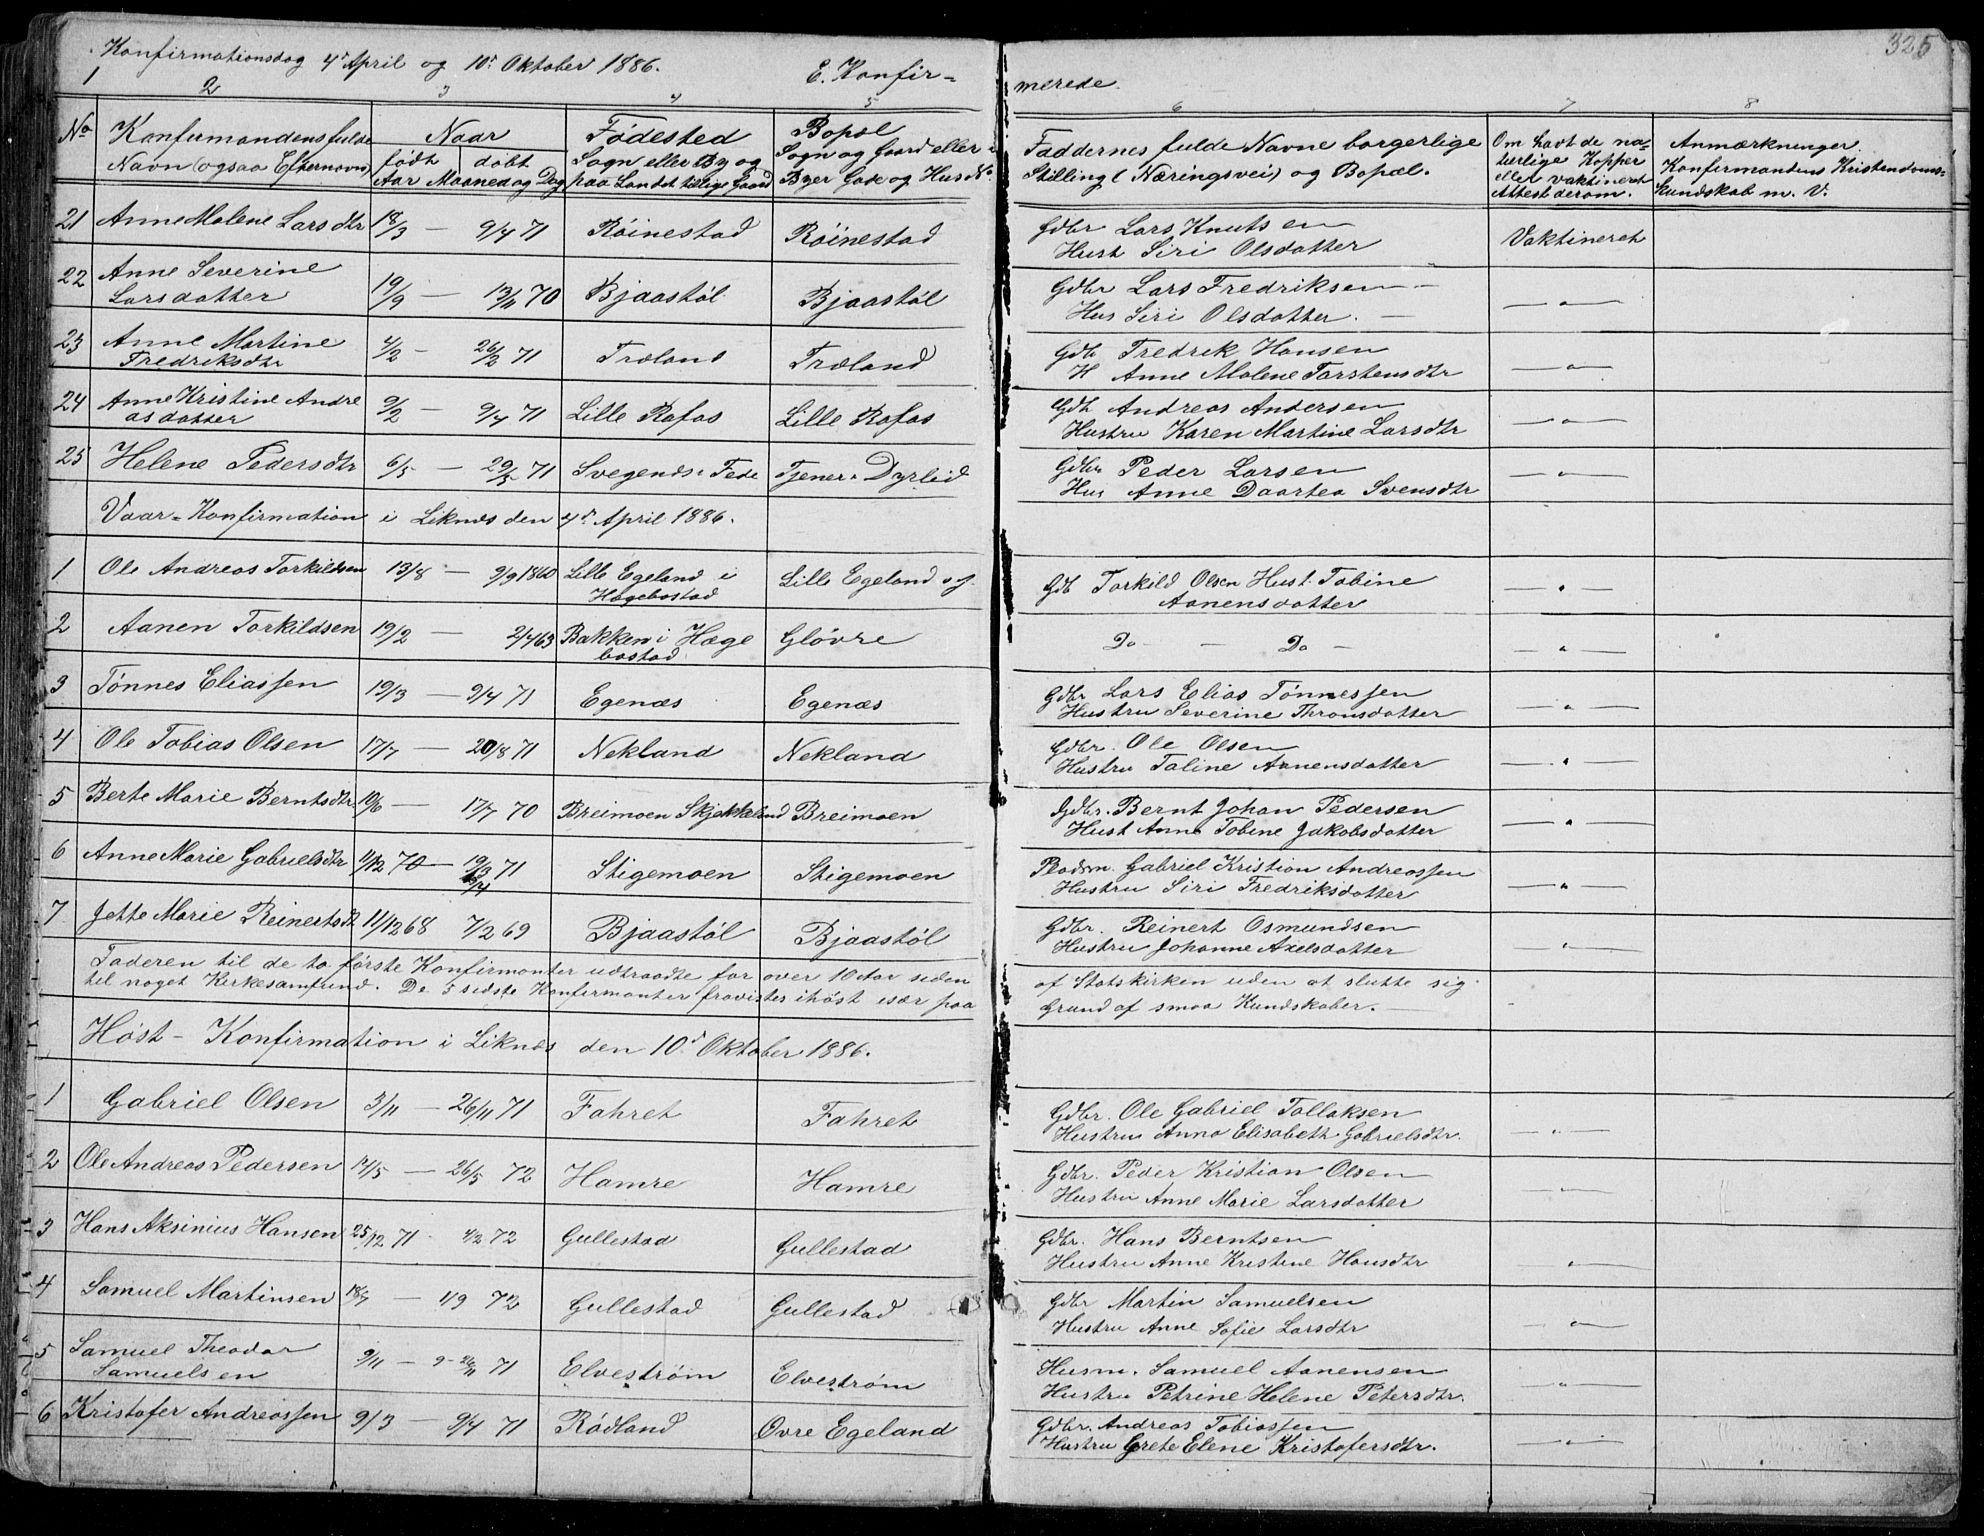 Konfirmationsdag 4de April og 10de Oktober 1886. E. Konfir= merede. 325
1 2 3 4 5 6 7 8
No Konfirmandens fulde Navn (ogsaa Efternavn) Naar født döbt Aar Maaned og Dag Födested Sogn eller By og paa Landet tillige Gaard Bopæl Sogn og Gaard eller i Byer Gade og Hus No Faddernes fulde Navne borgerlige Stilling (Næringsvei) og Bopæl. Om havt de naturlige Kopper eller vaktineret Attest derom. Anmærkninger. Konfirmandens Kristendoms-Kundskab m. V.
21 Anne Malene Larsdtr 18/3 — 9/4 71 Röinestad Röinestad Gdbr Lars Knutsen
Hust Siri Olsdatter Vaktineret
22 Anne Severine
Larsdatter 19/9 — 13/11 70 Bjaastöl Bjaastöl Gdbr Lars Fredriksen —
Hus Siri Olsdatter. — — " —
23 Anne Martine
Fredriksdtr 4/2 — 26/2 71 Træland Træland Gdb Fredrik Hansen
H Anne Malene Tarstensdtr — " —
24 Anne Kristine Andre
asdatter 9/2 — 9/4 71 Lille Rafos Lille Rafos Gdb Andreas Andersen
Hustru Karen Martine Larsdtr — " —
25 Helene Pedersdtr 6/5 — 29/5 71 Svegends i Fede Tjener i Dyrlid Gdbr Peder Larsen
Hus Anne Daartea Svensdtr — " —
Vaar=Konfirmation i Liknes den 4de April 1886.
1 Ole Andreas Torkildsen 13/8 — 9/9 1860 Lille Egeland i
Hægebostad Lille Egeland Gdb Torkild Olsen Hust. Tobine
Aanensdatter — " —
2 Aanen Torkildsen 19/2 — 2/4 63 Bakken i Hæge
bostad Glövre Do — Do — — " —
3 Tönnes Eliassen 19/3 — 9/4 71 Egenæs Egenæs Gdbr Lars Elias Tönnessen
Hustru Severine Thronsdatter — " —
4 Ole Tobias Olsen 17/7 — 20/8 71 Nekland Nekland Gdbr. Ole Olsen
Hustru Taline Aanensdatter — " —
5 Berte Marie Berntsdtr. 10/6 — 17/7 70 Breimoen Skjekkeland Breimoen Gdbr. Bernt Johan Pedersen
Hust Anne Tobine Jakobsdatter — " —
6 Anne Marie Gabrielsdtr 11/12 70 — 19/3 71
/4 Stigemoen Stigemoen Pladsm. Gabriel Kristian Andreassen
Hustru Siri Fredriksdatter — " —
7 Jette Marie Reinertsdt 11/12 68 7/2 69 Bjaastöl Bjaastöl Gdbr. Reinert Osmundsen
Hustru Johanne Axelsdatter — " —
Faderen til de to förste Konfirmanter udtraadte for over 10 Aar siden af Statskirken uden at slutte sig
til noget Kirkesamfund. De 5 sidste Konfirmanter fravistes ihöst især paa Grund af smaa Kundskaber. —
Höst - Konfirmation i Liknes den 10de Oktober 1886.
1 Gabriel Olsen 3/11 — 26/11 71 Fahret Fahret Gdbr. Ole Gabriel Tollaksen
Hustru Anna Elisabeth Gabrielsdtr. — " —
2 Ole Andreas Pedersen 14/5 — 26/5 72 Hamre Hamre Gdbr. Peder Kristian Olsen
Hustru Anne Marie Larsdatter — " —
3 Hans Aksinius Hansen 25/12 71 4/2 72 Gullestad Gullestad Gdbr. Hans Berntsen
Hustru Anne Kristine Hansdtr — " —
4 Samuel Martinsen 18/7 — 1/9 72 Gullestad Gullestad Gdbr Martin Samuelsen
Hustru Anne Sofie Larsdtr — " —
5 Samuel Theodor
Samuelsen 9/11 — 9-26/11 71 Elveströim Elveströim Husm. Samuel Aanensen
Hustru Petrine Helene Petersdtr. — " —
6 Kristofer Andreassen 9/3 — 9/4 71 Rödland Övre Egeland Gdbr. Andreas Tobiassen
Hustru Grete Elene Kristofersdtr. — " —